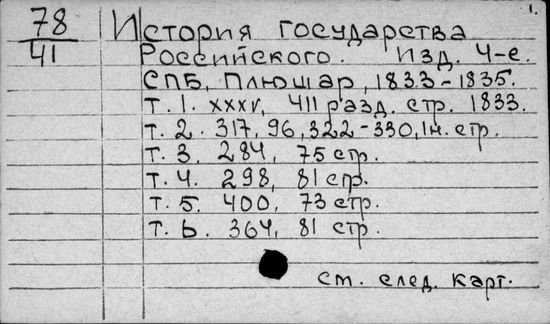 1.
78 История государства
41 Российского. Изд. 4-е.
СПБ, Плюшар, 1833-1835.
т. 1. XXXV, 411 разд. стр. 1833.
т. 2. 317, 96, 322-330, 1н. стр.
т. 3. 284, 75 стр.
т. 4. 298, 81 стр.
т. 5. 400, 73 стр.
т. 6. 364, 81 стр.
см. след. карт.